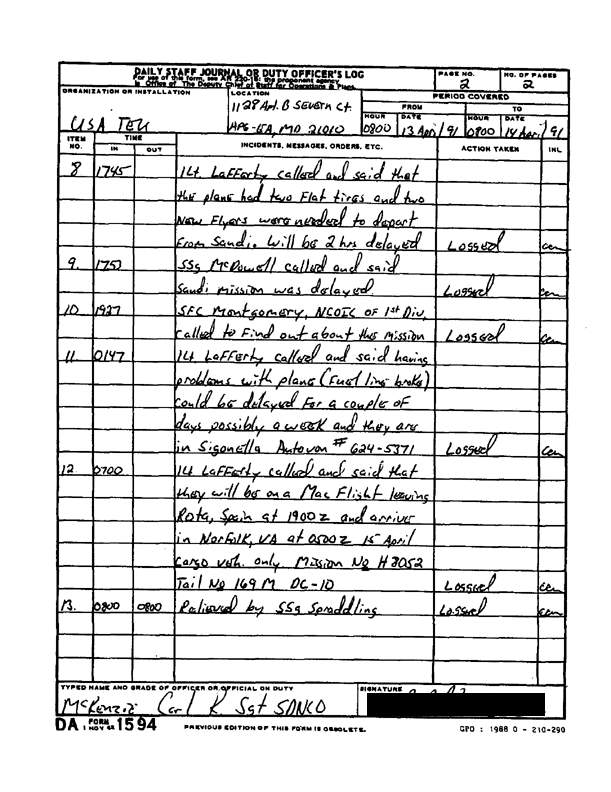 DAILY STAFF JOURNAL OR DUTY OFFICER'S LOG
For use of this form, see AR 220-15; the proponent agency
is Office of The Deputy Chief of Staff for Operations & Plans.
PAGE NO.
2
NO. OF PAGES
2
ORGANIZATION OR INSTALLATION
USA TEU
LOCATION
1128 Apt. B Severn Ct.
APG-EA, MD 21010
PERIOD COVERED
FROM
TO
HOUR
DATE
HOUR
DATE
0800
13 April 91
0800
14 April 91
ITEM NO.
TIME
IN
OUT
INCIDENTS, MESSAGES, ORDERS, ETC.
ACTION TAKEN
INL
8 1745 1Lt. Lafferty called and said that
the plane had two flat tires and two
New Flyers were needed to depart
from Saudi. Will be 2 hrs delayed Logged cem
9. 1757 SSg McDowell called and said
Saudi mission was delayed. Logged cem
10 1927 SFC Montgomery, NCOIC of 1st Div,
called to find out about the mission Logged cem
11 0147 1Lt Lafferty called and said having
problems with plane (Fuel line broke)
could be delayed for a couple of
days possibly a week and they are
in Sigonella Autovon # 624-5371 Logged cem
12. 0700 1Lt Lafferty called and said that
they will be on a Mac Flight leaving
Rota, Spain at 1900z and arrive
in Norfolk, VA at 0500z 15 April
Cargo veh. only. Mission No H8052
Tail No 169M DC-10 Logged cem
13. 0800 0800 Relieved by SSg Spraddling Logged cem
TYPED NAME AND GRADE OF OFFICER OR OFFICIAL ON DUTY
McKenzie Carl R Sgt SDNCO
SIGNATURE
DA FORM 1594
1 NOV 62
PREVIOUS EDITION OF THIS FORM IS OBSOLETE.
GPO : 1988 O - 210-290